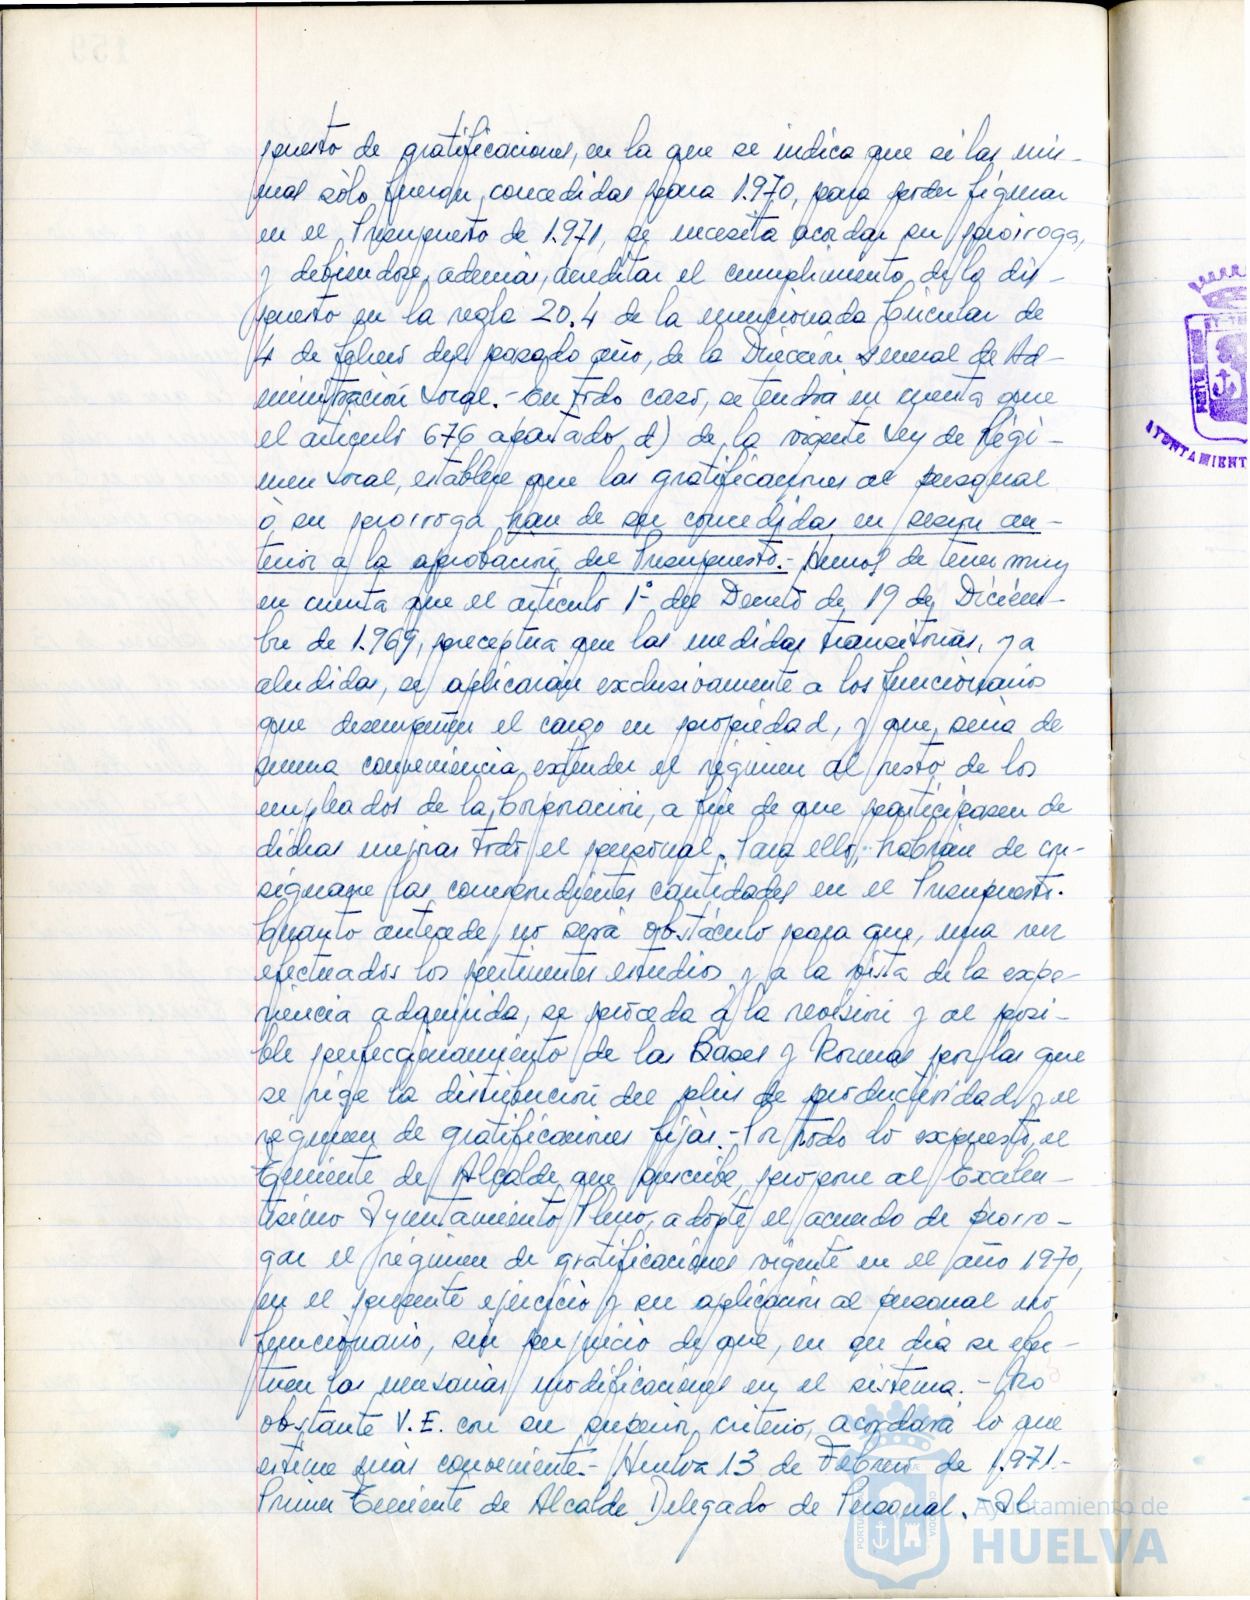 puesto de gratificaciones, en la que se indica que si las mis-
mas sólo fueron concedidas para 1.970, para poder figurar
en el Presupuesto de 1.971, se necesita acordar su prórroga,
y debiendose, además, acreditar el cumplimiento de lo dis-
puesto en la regla 20.4 de la mencionada Circular de
4 de Febrero del pasado año, de la Dirección General de Ad-
ministración Local.- En todo caso, se tendrá en cuenta que
el artículo 676 apartado d) de la vigente Ley de Régi-
men Local, establece que las gratificaciones al personal
o su prórroga han de ser concedidas en sesión an-
terior a la aprobación del Presupuesto.- Hemos de tener muy
en cuenta que el artículo 1º del Decreto de 19 de Diciem-
bre de 1.969, preceptua que las medidas transitorias, ya
aludidas, se aplicarán exclusivamente a los funcionarios
que desempeñen el cargo en propiedad, y que, sería de
suma conveniencia extender el régimen al resto de los
empleados de la Corporación, a fin de que participasen de
dichas mejoras todo el personal. Para ello, habrían de con-
signarse las correspondientes cantidades en el Presupuesto.
Cuanto antecede, no será obstáculo para que, una vez
efectuados los pertinentes estudios y a la vista de la expe-
riencia adquirida, se proceda a la revisión y al posi-
ble perfeccionamiento de las Bases y Normas por las que
se rige la distribución del plus de productividad y el
régimen de gratificaciones fijas.- Por todo lo expuesto, el
Teniente de Alcalde que suscribe, propone al Excelen-
tísimo Ayuntamiento Pleno, adopte el acuerdo de prorro-
gar el régimen de gratificaciones vigente en el año 1970,
en el presente ejercicio y su aplicación al personal no
funcionario, sin perjuicio de que, en su día se efec-
tuen las necesarias modificaciones en el sistema.- No
obstante V.E. con su superior criterio, acordará lo que
estime más conveniente.- Huelva 13 de Febrero de 1.971.-
Primer Teniente de Alcalde Delegado de Personal.- Al
AYUNTAMIENT
Ayuntamiento de
HUELVA